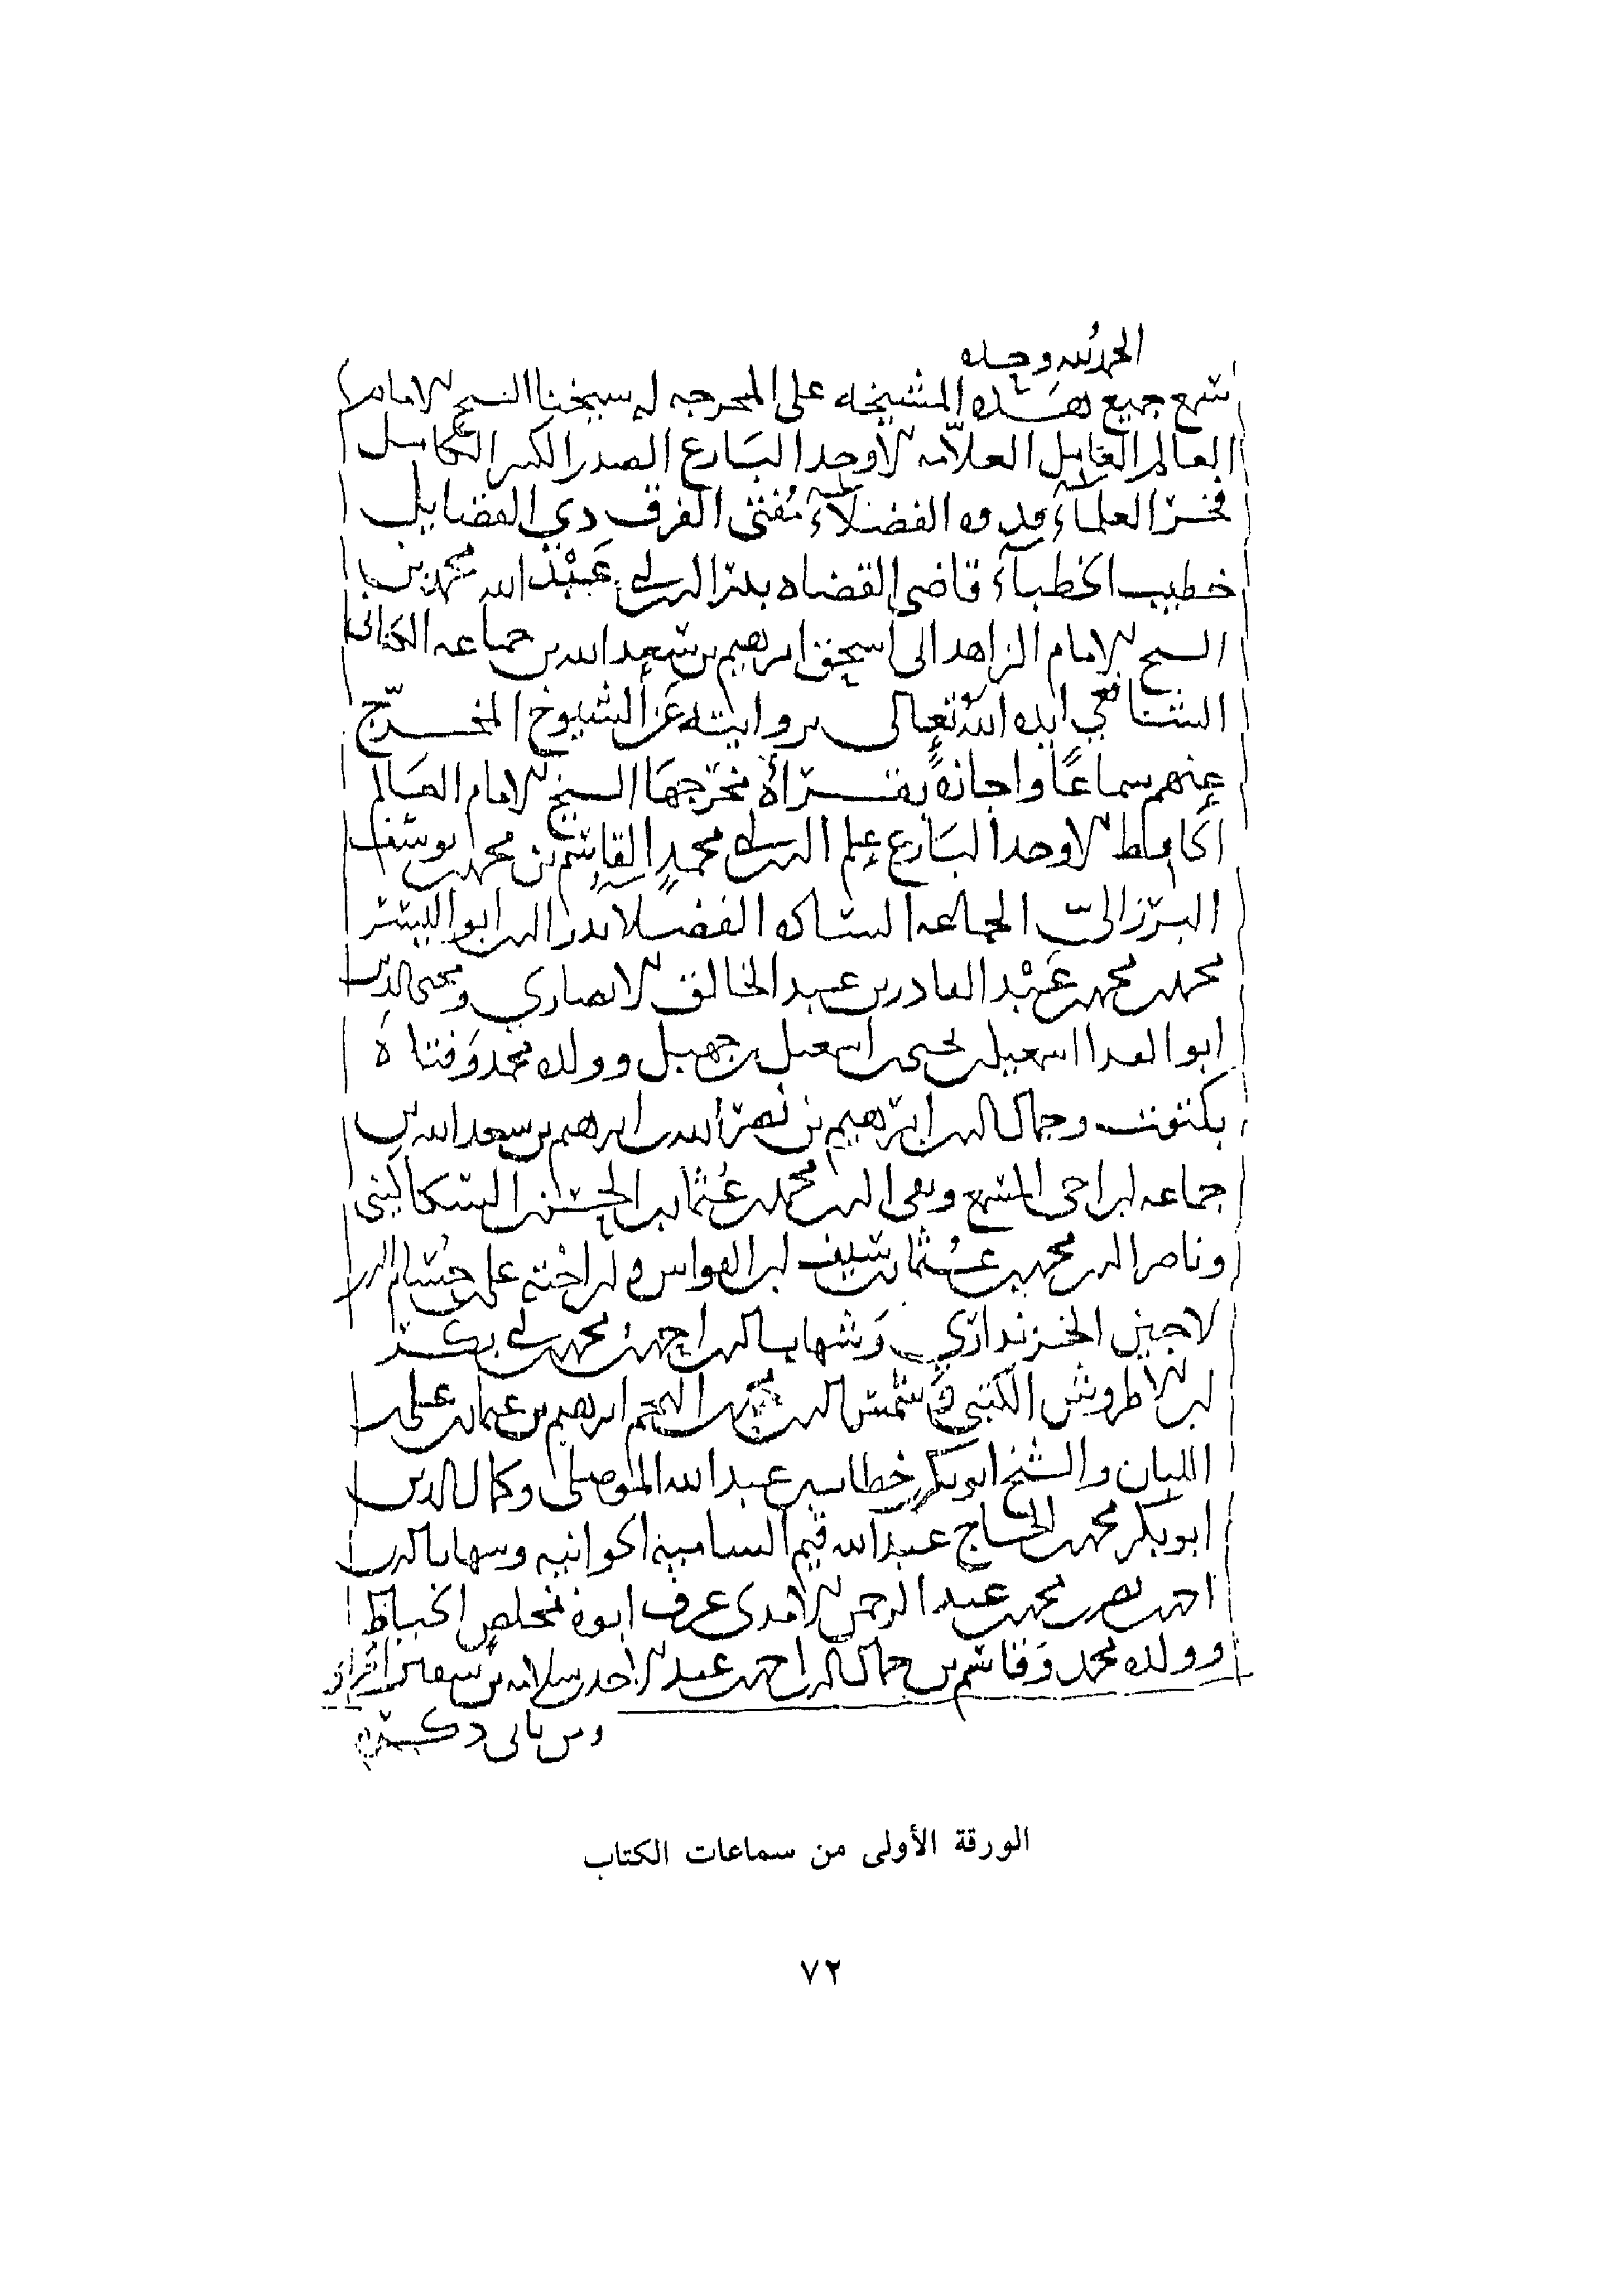 الحمد لله وحده
سمع جميع هذه المشيخه على المخرجه له سيخنا الشيخ الامام
العالم العامل العلامه الاوحد البارع الصدر الكبير الكامل
فخر العلماء قدوه الفضلاء مفتى الفرق ذي الفضايل
خطيب الخطباء قاضى القضاه بدر الدين ابي عبد الله محمد بن
الشيخ الامام الزاهد ابى اسحق ابرهيم بن سعد الله بن جماعه الكنانى
الشافعي ايده الله تعالى بروايته عن الشيوخ المخرج
عنهم سماعا واجازه بقراة مخرجها الشيخ الامام العالم
الحافظ الاوحد البارع علم الدين ابى محمد القاسم بن محمد بن يوسف
البرزالي الجماعه الساده الفضلا بدر الدين ابو اليسر
محمد بن محمد بن عبد القادر بن عبد الخالق الانصاري ومحى الدين
ابو الفدا اسمعيل بن يحيى بن اسمعيل بن جهبل وولده محمد وفتاه
بكتوت وجمال الدين ابرهيم بن نصر الله بن ابرهيم بن سعد الله بن
جماعه ابن اخى المسمع وتقى الدين محمد بن عثمان بن
وناصر الدين محمد بن عثمان بن سيف ابن القواس وابن اخته على بن حسام الدين
لاجين الخزنداري وشهاب الدين احمد بن محمد بن ابي بكر
ابن الاطروش الكتبي وشمس الدين محمد بن النجم ابرهيم بن عثمان بن على بن
اللبان والشيخ ابو بكر بن خطاب بن عبد الله الموصلى وكمال الدين
ابو بكر محمد بن الحاج عبد الله قيم الشاميه الجوانيه وشهاب الدين
احمد بن نصر بن محمد بن عبد الرحمن الامدى عرف ابوه بمخلص الخياط
وولده محمد وقاسم بن جمال الدين احمد بن عبد الاحد بن سلامه بن
الورقة الأولى من سماعات الكتاب
٧٢